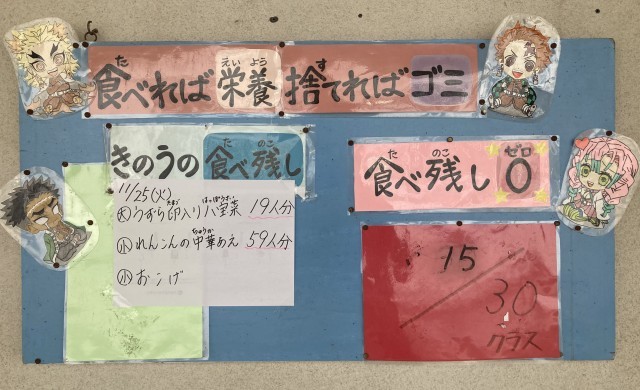 食べれば栄養 捨てればゴミ
きのうの食べ残し
11/25(火)
大 うずら卵入り八宝菜 19人分
小 れんこんの中華あえ 59人分
小 おこげ
食べ残し0
15/30クラス